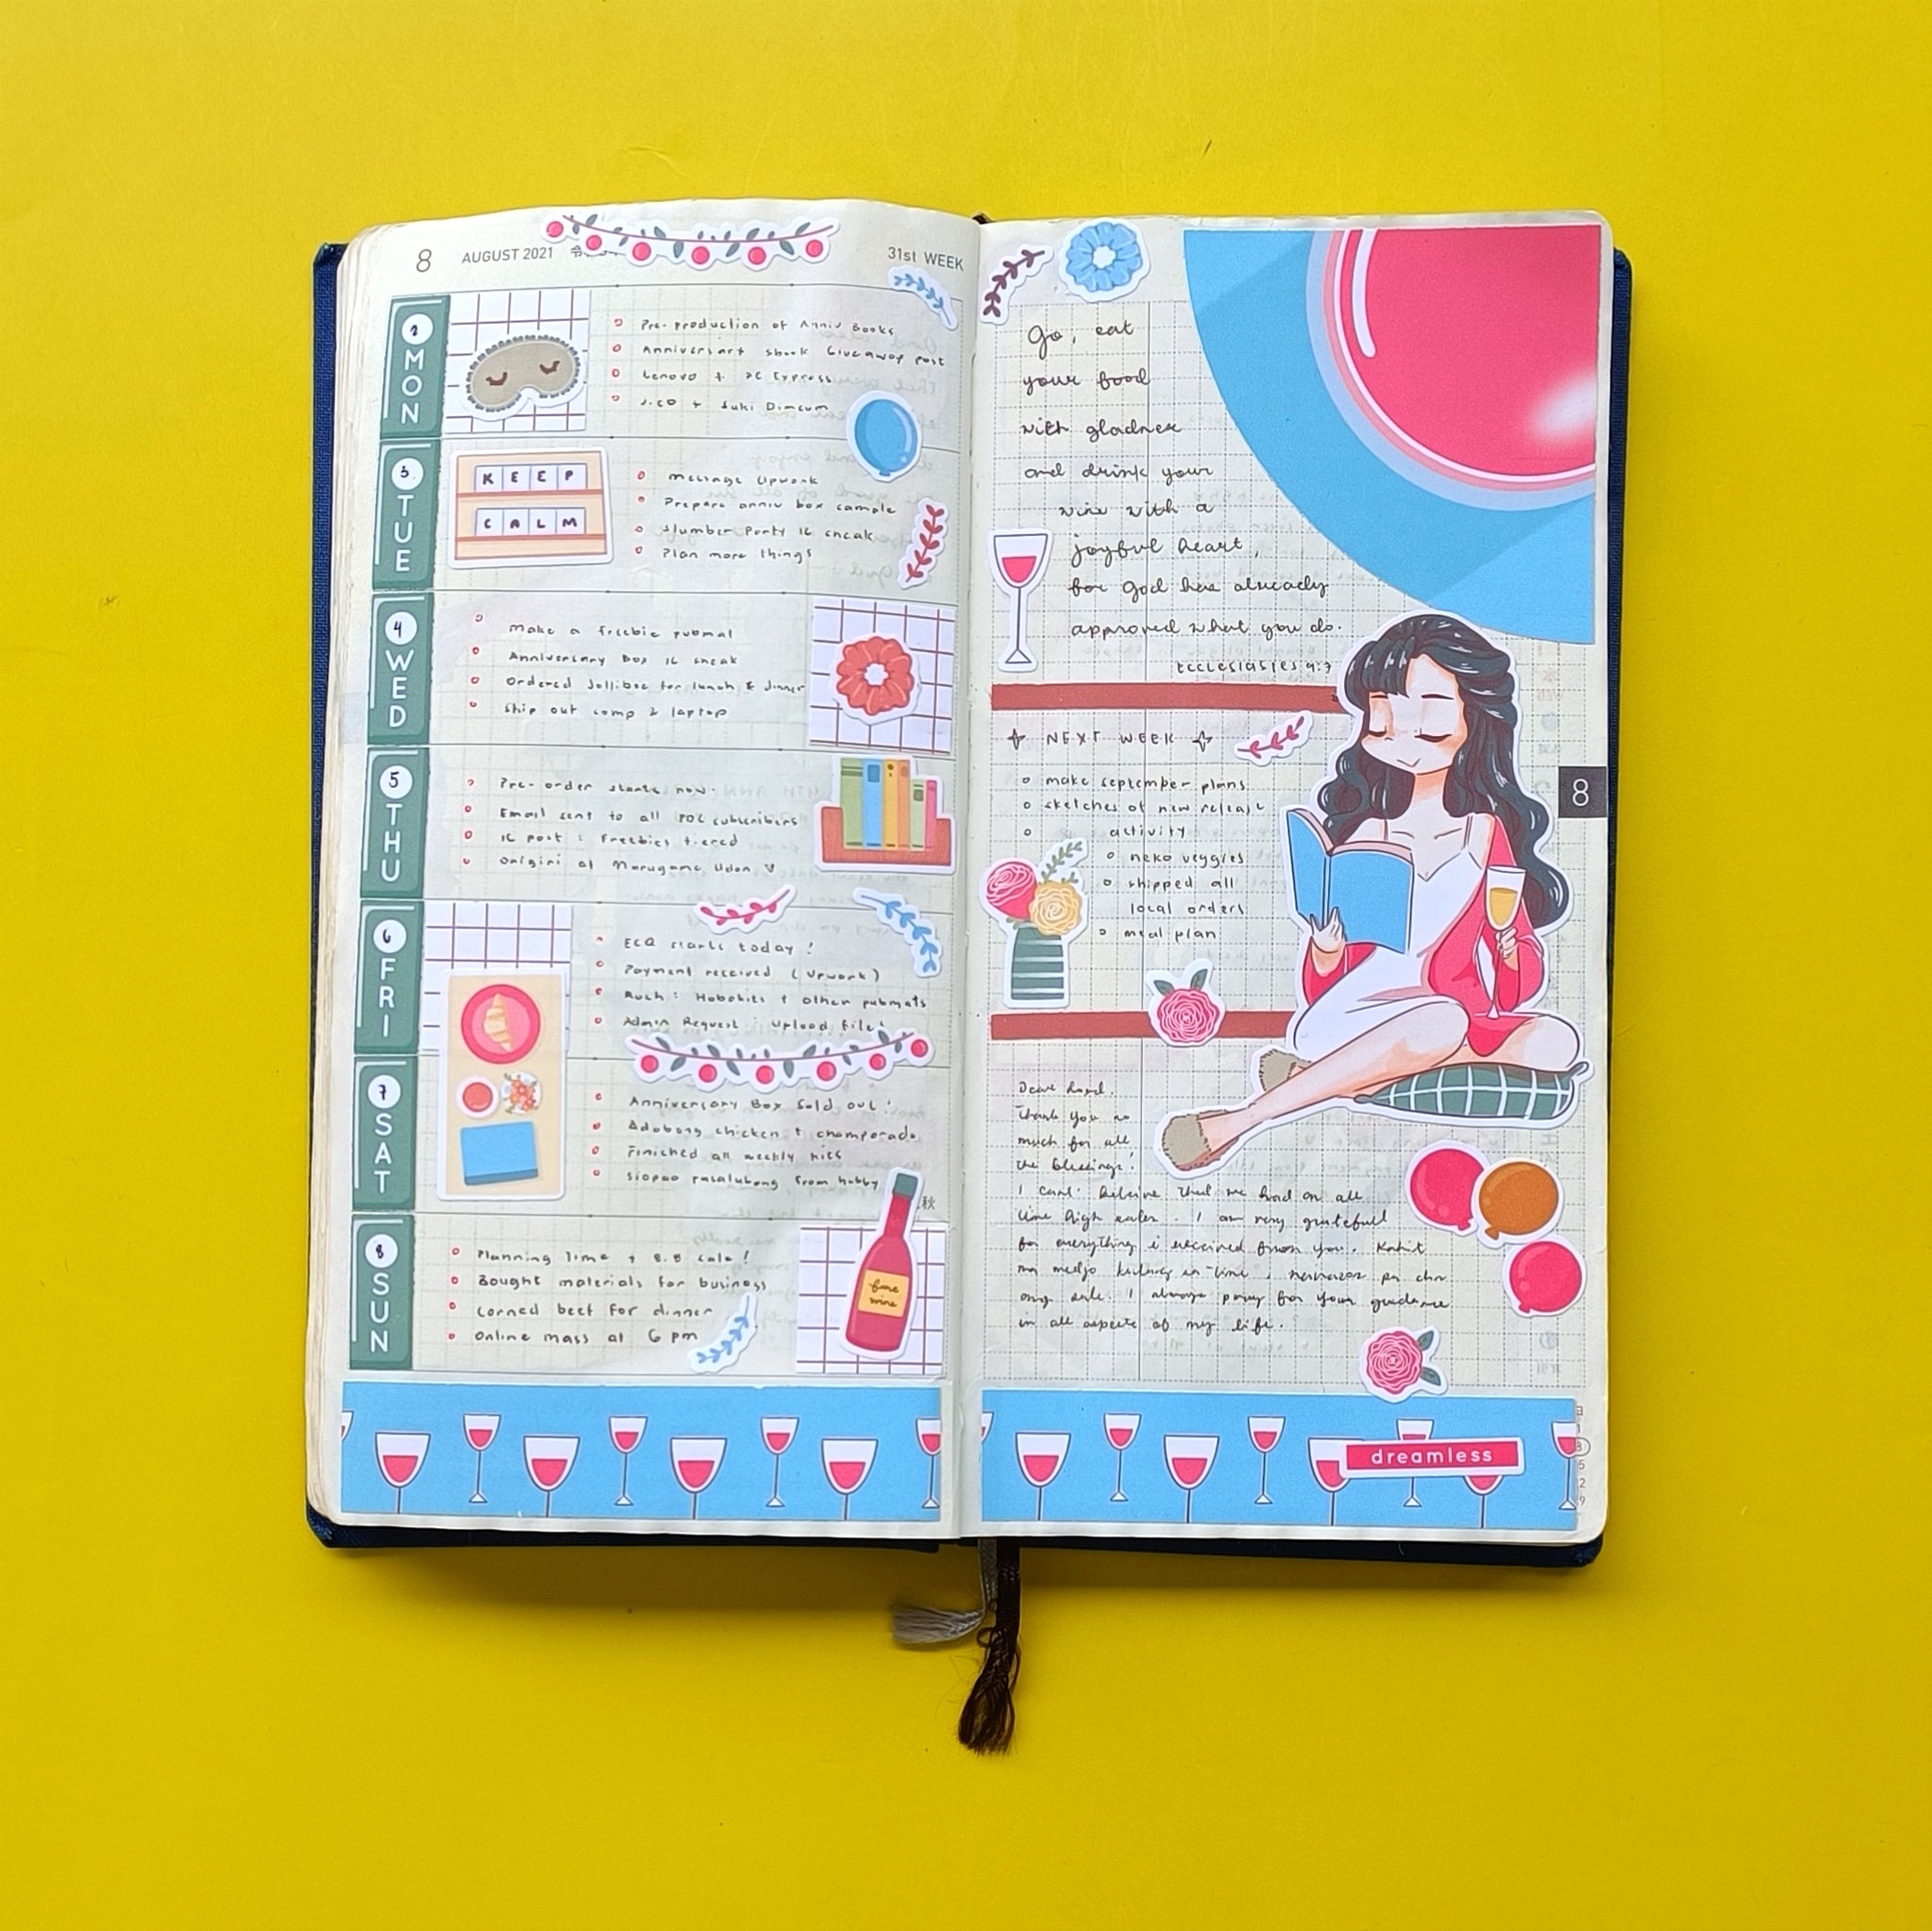 8 AUGUST 2021
31st WEEK
2 MON
Pre-production of Anniv Books
Anniversary ebook Giveaway post
Lenovo + PC Express
J.CO + Suki Dimsum
3 TUE
KEEP
CALM
Message Upwork
Prepare anniv box sample
Slumber Party IG sneak
Plan more things
4 WED
Make a freebie pubmat
Anniversary Box IG sneak
Ordered Jollibee for lunch & dinner
Ship out comp & laptop
5 THU
Pre-order starts now.
Email sent to all subscribers
IG post : Freebies tiered
Origiri at Marugame Udon
6 FRI
ECQ starts today !
Payment received (Upwork)
Rush : Hobokits + other pubmats
Admin Request : Upload files
7 SAT
Anniversary Box Sold out !
Adobong chicken + champorado
Finished all weekly kits
Siopao pasalubong from hubby
秋
8 SUN
Planning Time + 8.8 sale !
Bought materials for business
Corned beef for dinner
Online mass at 6 pm
fine
wine
Go, eat
your food
with gladness
and drink your
wine with a
joyful heart,
for God has already
approved what you do.
Ecclesiastes 9:7
NEXT WEEK
make september plans
sketches of new release
activity
neko veggies
shipped all
local orders
meal plan
8
Dear Lord,
Thank you so
much for all
the blessings!
I can't believe that we had an all
time high sales. I am very grateful
for everything i received from you. Kahit
na medjo
I always pray for your guidance
in all aspects of my life.
dreamless